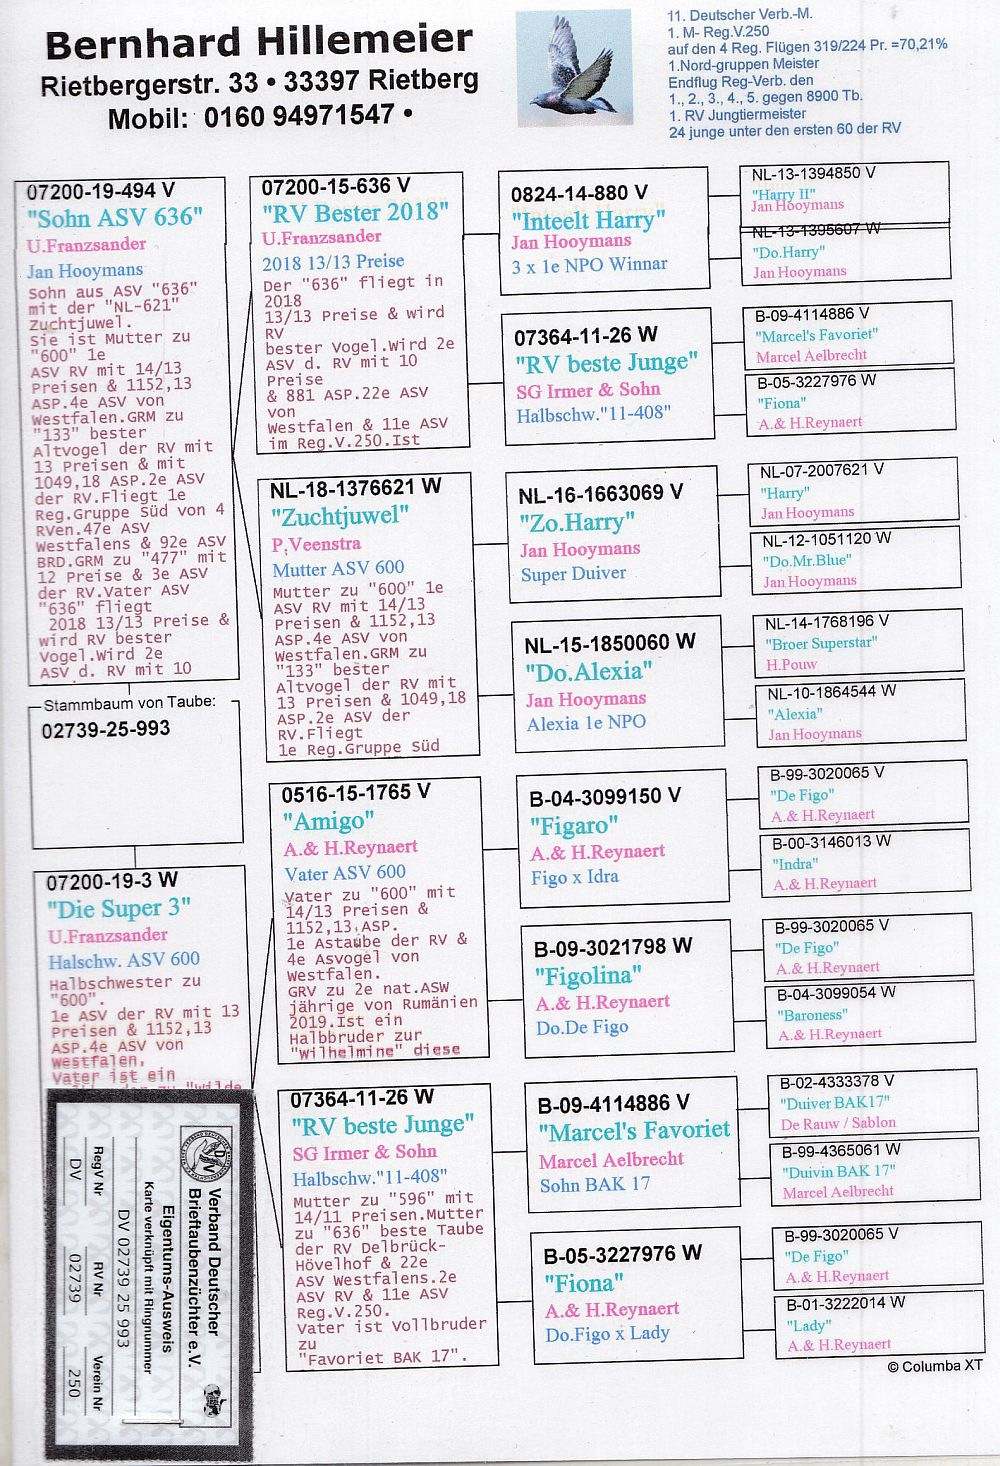 Bernhard Hillemeier
Rietbergerstr. 33 • 33397 Rietberg
Mobil: 0160 94971547 •
11. Deutscher Verb.-M.
1. M- Reg.V.250
auf den 4 Reg. Flügen 319/224 Pr. =70,21%
1.Nord-gruppen Meister
Endflug Reg-Verb. den
1., 2., 3., 4., 5. gegen 8900 Tb.
1. RV Jungtiermeister
24 junge unter den ersten 60 der RV
07200-19-494 V
"Sohn ASV 636"
U.Franzsander
Jan Hooymans
Sohn aus ASV "636"
mit der "NL-621"
Zuchtjuwel.
Sie ist Mutter zu
"600" 1e
ASV RV mit 14/13
Preisen & 1152,13
ASP.4e ASV von
Westfalen.GRM zu
"133" bester
Altvogel der RV mit
13 Preisen & mit
1049,18 ASP.2e ASV
der RV.Fliegt 1e
Reg.Gruppe Süd von 4
RVen.47e ASV
Westfalens & 92e ASV
BRD.GRM zu "477" mit
12 Preise & 3e ASV
der RV.Vater ASV
"636" fliegt
2018 13/13 Preise &
wird RV bester
Vogel.Wird 2e
ASV d. RV mit 10
Stammbaum von Taube:
02739-25-993
07200-19-3 W
"Die Super 3"
U.Franzsander
Halschw. ASV 600
Halbschwester zu
"600".
1e ASV der RV mit 13
Preisen & 1152,13
ASP.4e ASV von
Westfalen.
Vater ist ein
zu "Wilde
07200-15-636 V
"RV Bester 2018"
U.Franzsander
2018 13/13 Preise
Der "636" fliegt in
2018
13/13 Preise & wird
RV
bester Vogel.Wird 2e
ASV d. RV mit 10
Preise
& 881 ASP.22e ASV
von
Westfalen & 11e ASV
im Reg.V.250.Ist
NL-18-1376621 W
"Zuchtjuwel"
P,Veenstra
Mutter ASV 600
Mutter zu "600" 1e
ASV RV mit 14/13
Preisen & 1152,13
ASP.4e ASV von
Westfalen.GRM zu
"133" bester
Altvogel der RV mit
13 Preisen & 1049,18
ASP.2e ASV der
RV.Fliegt
1e Reg.Gruppe Süd
0516-15-1765 V
"Amigo"
A.& H.Reynaert
Vater ASV 600
Vater zu "600" mit
14/13 Preisen &
1152,13,ASP.
1e Astaube der RV &
4e Asvogel von
Westfalen.
GRV zu 2e nat.ASW
jährige von Rumänien
2019.Ist ein
Halbbruder zur
"Wilhelmine" diese
07364-11-26 W
"RV beste Junge"
SG Irmer & Sohn
Halbschw."11-408"
Mutter zu "596" mit
14/11 Preisen.Mutter
zu "636" beste Taube
der RV Delbrück-
Hövelhof & 22e
ASV Westfalens.2e
ASV RV & 11e ASV
Reg.V.250.
Vater ist Vollbruder
zu
"Favoriet BAK 17".
0824-14-880 V
"Inteelt Harry"
Jan Hooymans
3 x 1e NPO Winnar
07364-11-26 W
"RV beste Junge"
SG Irmer & Sohn
Halbschw."11-408"
NL-16-1663069 V
"Zo.Harry"
Jan Hooymans
Super Duiver
NL-15-1850060 W
"Do.Alexia"
Jan Hooymans
Alexia 1e NPO
B-04-3099150 V
"Figaro"
A.& H.Reynaert
Figo x Idra
B-09-3021798 W
"Figolina"
A.& H.Reynaert
Do.De Figo
B-09-4114886 V
"Marcel's Favoriet
Marcel Aelbrecht
Sohn BAK 17
B-05-3227976 W
"Fiona"
A.& H.Reynaert
Do.Figo x Lady
NL-13-1394850 V
"Harry II"
Jan Hooymans
NL-13-1395607 W
"Do.Harry"
Jan Hooymans
B-09-4114886 V
"Marcel's Favoriet"
Marcel Aelbrecht
B-05-3227976 W
"Fiona"
A.& H.Reynaert
NL-07-2007621 V
"Harry"
Jan Hooymans
NL-12-1051120 W
"Do.Mr.Blue"
Jan Hooymans
NL-14-1768196 V
"Broer Superstar"
H.Pouw
NL-10-1864544 W
"Alexia"
Jan Hooymans
B-99-3020065 V
"De Figo"
A.& H.Reynaert
B-00-3146013 W
"Indra"
A.& H.Reynaert
B-99-3020065 V
"De Figo"
A.& H.Reynaert
B-04-3099054 W
"Baroness"
A.& H.Reynaert
B-02-4333378 V
"Duiver BAK17"
De Rauw / Sablon
B-99-4365061 W
"Duivin BAK 17"
Marcel Aelbrecht
B-99-3020065 V
"De Figo"
A.& H.Reynaert
B-01-3222014 W
"Lady"
A.& H.Reynaert
© Columba XT
Verband Deutscher
Brieftaubenzüchter e.V.
Eigentums-Ausweis
Karte verknüpft mit Ringnummer
DV 02739 25 993
RegV Nr
RV Nr
Verein Nr
DV
02739
250